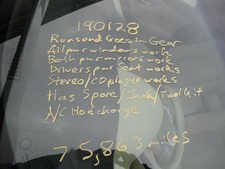 190128
Runs and Goes In Gear
All pwr windows work
Both pwr mirrors work
Drivers pwr Seat works
Stereo/CD player works
Has Spare/Jack/Tool kit
A/C Has charge
75,863 miles